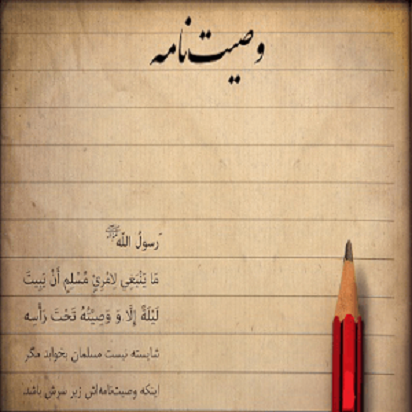 وصیت‌نامه
رسولُ اللّه ﷺ
مَا يَنْبَغِي لِامْرِئٍ مُسْلِمٍ أَنْ يَبِيتَ
لَيْلَةً إِلَّا وَ وَصِيَّتُهُ تَحْتَ رَأْسِهِ
شایسته نیست مسلمان بخوابد مگر
اینکه وصیت‌نامه‌اش زیر سرش باشد